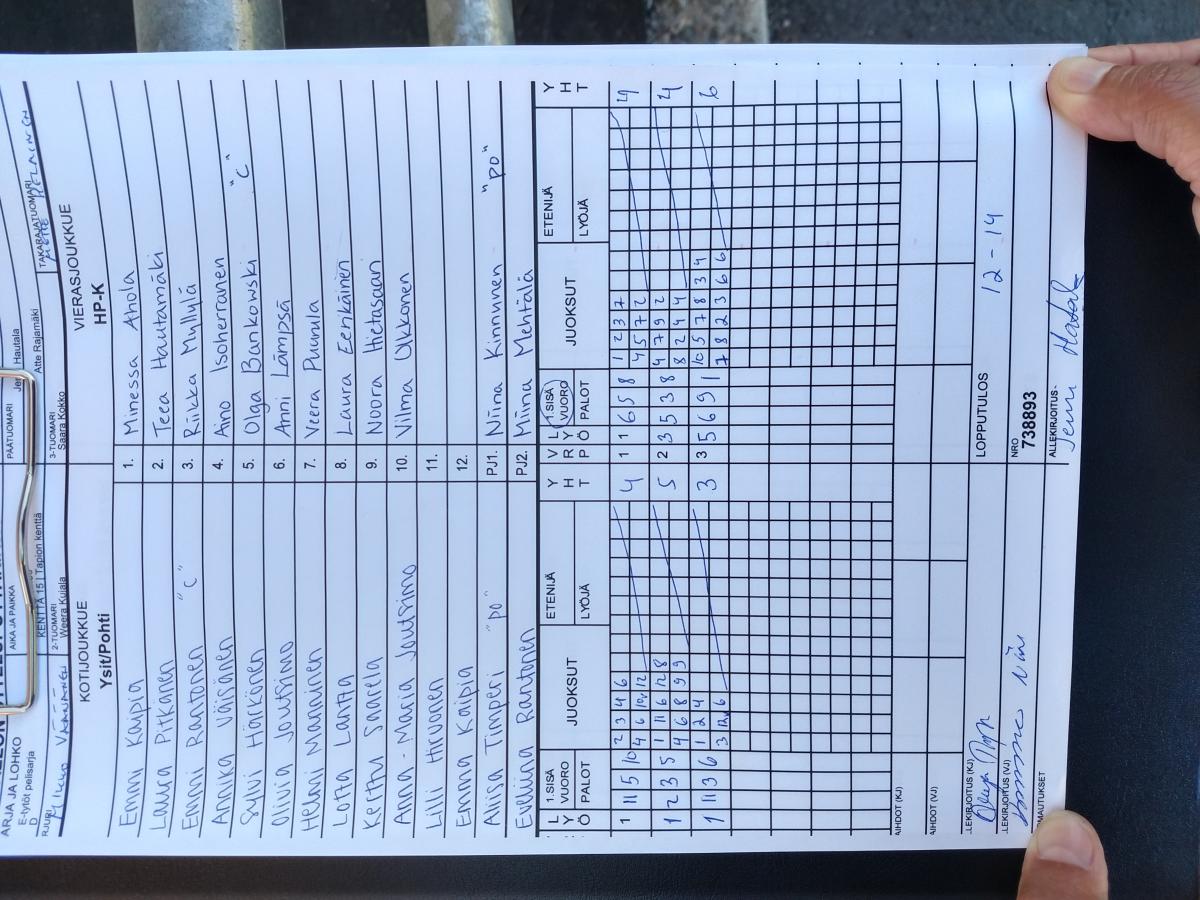 ARJA JA LOHKO
E-tytöt pelisarja
D
AIKA JA PAIKKA
KENTTÄ 15 | Tapion kenttä
PÄÄTUOMARI
Hautala
2-TUOMARI
Weera Kujala
3-TUOMARI
Saara Kokko
Atte Rajamäki
TAKARAJATUOMARI
KOTIJOUKKUE
Ysit/Pohti
VIERASJOUKKUE
HP-K
Emmi Kaipia 1. Minessa Ahola
Laura Pitkänen 2. Teea Hautamäki
Emmi Rantonen "C" 3. Riikka Myllylä
Annika Väisänen 4. Aino Isoherranen
Sylvi Härkönen 5. Olga Bankowski "C"
Olivia Joutsimo 6. Anni Lämpsä
Helmi Manninen 7. Veera Puurula
Lotta Lantta 8. Laura Eenkäinen
Kerttu Saarela 9. Noora Hietasaari
Anna-Maria Joutsimo 10. Vilma Ulkkonen
Lilli Hirvonen 11.
Emma Kaipia 12.
Aliisa Timperi "PO" PJ1. Niina Kinnunen "PO"
Eveliina Rantonen PJ2. Miina Mehtälä
L Y Ö 1.SISÄ VUORO PALOT JUOKSUT ETENIJÄ LYÖJÄ Y H T V R P L Y Ö 1.SISÄ VUORO PALOT JUOKSUT ETENIJÄ LYÖJÄ Y H T
1 11 5 10 2 3 4 6 4 1 1 6 5 8 1 2 3 7 4
4 6 10 12 4 5 7 2
1 2 3 5 1 11 6 12 8 5 2 3 5 3 8 4 7 9 2 4
4 6 8 9 9 8 2 4 4
1 11 3 6 1 2 4 3 3 5 6 9 1 10 5 7 8 3 4 6
3 12 6 7 8 2 3 6 6
AIHDOT (KJ)
AIHDOT (VJ)
LEKIRJOITUS (KJ)
LOPPUTULOS
12 - 14
LEKIRJOITUS (VJ)
NRO
738893
OMAUTUKSET
ALLEKIRJOITUS-